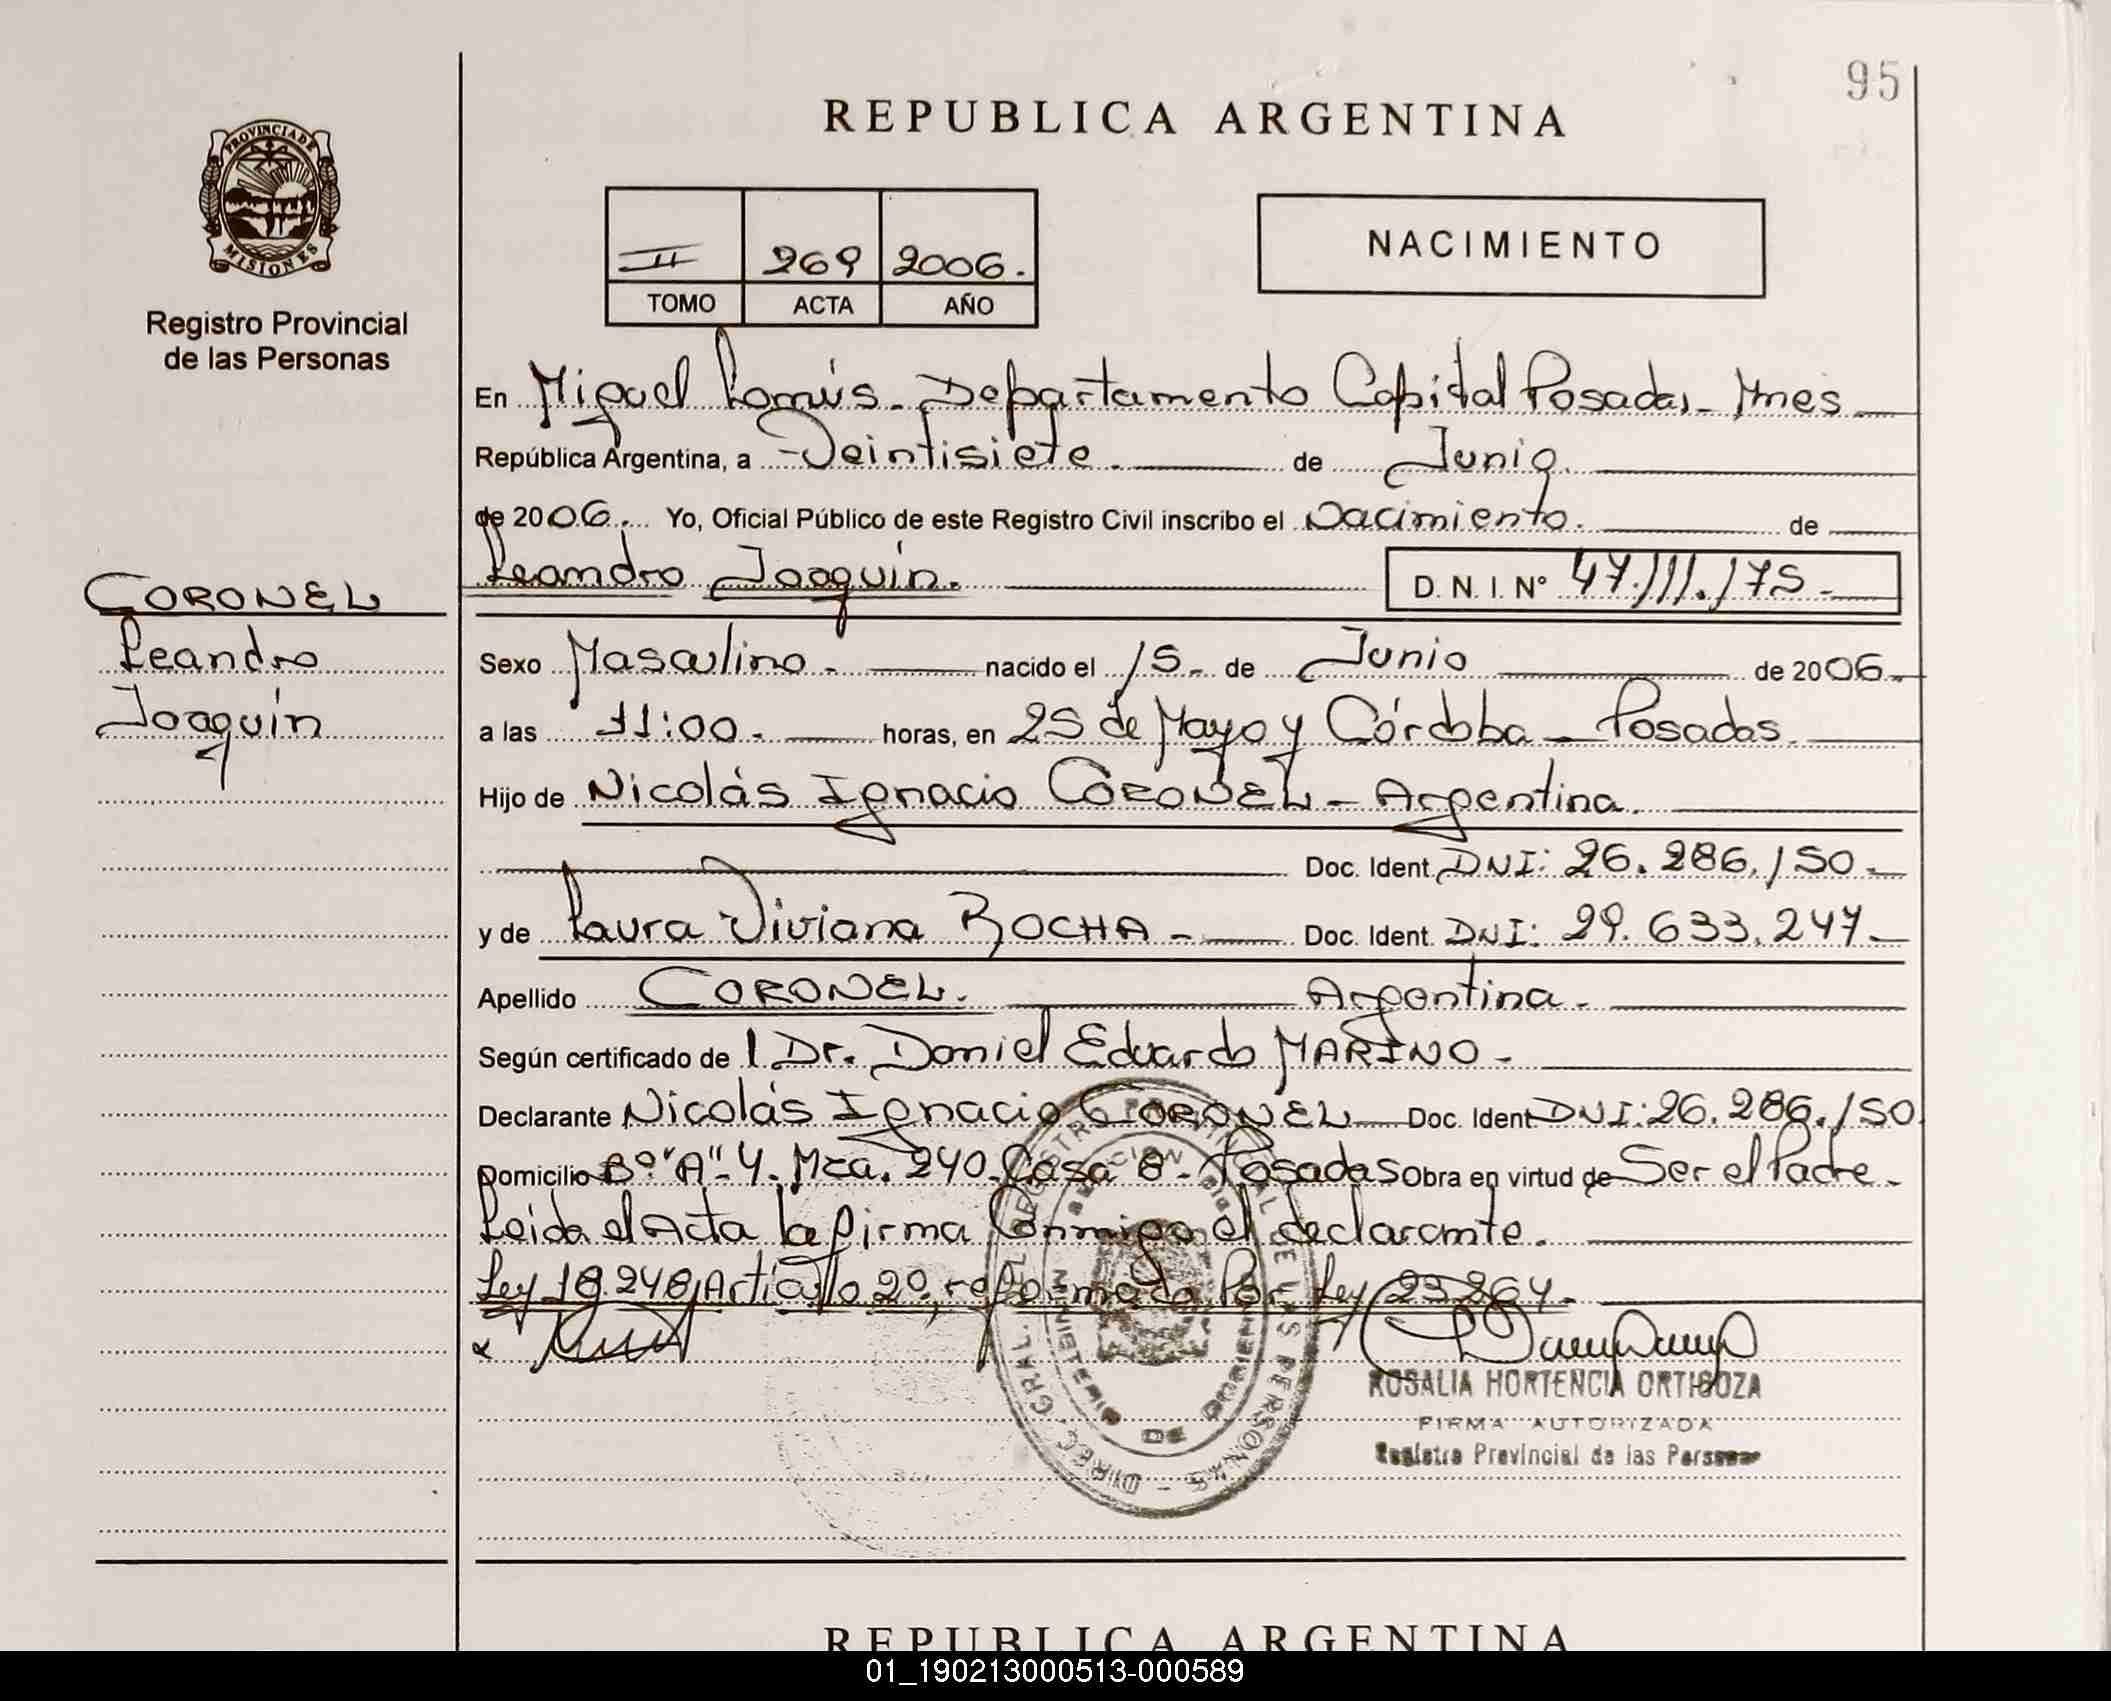 95
REPUBLICA ARGENTINA
PROVINCIA DE
MISIONES
Registro Provincial
de las Personas
II 269 2006.
TOMO ACTA AÑO
NACIMIENTO
En Miguel Lanús - Departamento Capital Posadas - Mnes
República Argentina, a Veintisiete. de Junio.
de 2006. Yo, Oficial Público de este Registro Civil inscribo el Nacimiento. de
Leandro Joaquín. D. N. I. Nº 47.111.175.-
CORONEL
Leandro
Joaquín
Sexo Masculino. nacido el 15.- de Junio de 2006.-
a las 11:00. horas, en 25 de Mayo y Córdoba - Posadas.
Hijo de Nicolás Ignacio CORONEL - Argentina.
Doc. Ident. DNI: 26.286.150.-
y de Laura Viviana ROCHA - Doc. Ident. DNI: 29.633.247-
Apellido CORONEL. Argentina.
Según certificado de l Dr. Daniel Eduardo MARINO -
Declarante Nicolás Ignacio CORONEL Doc. Ident. DNI: 26.286.150
Domicilio Bº "A".4. Mza. 240. Casa 8 - Posadas Obra en virtud de Ser el Padre -
Leida el Acta la firma Conmigo el declarante.
Ley 18.248, Artículo 2º, reformado Por Ley 23264.
DIREC. GRAL. REGISTRO PROVINCIAL DE LAS PERSONAS
ROSALIA HORTENCIA ORTIGOZA
FIRMA AUTORIZADA
Registro Provincial de las Personas
REPUBLICA ARGENTINA
01_190213000513-000589